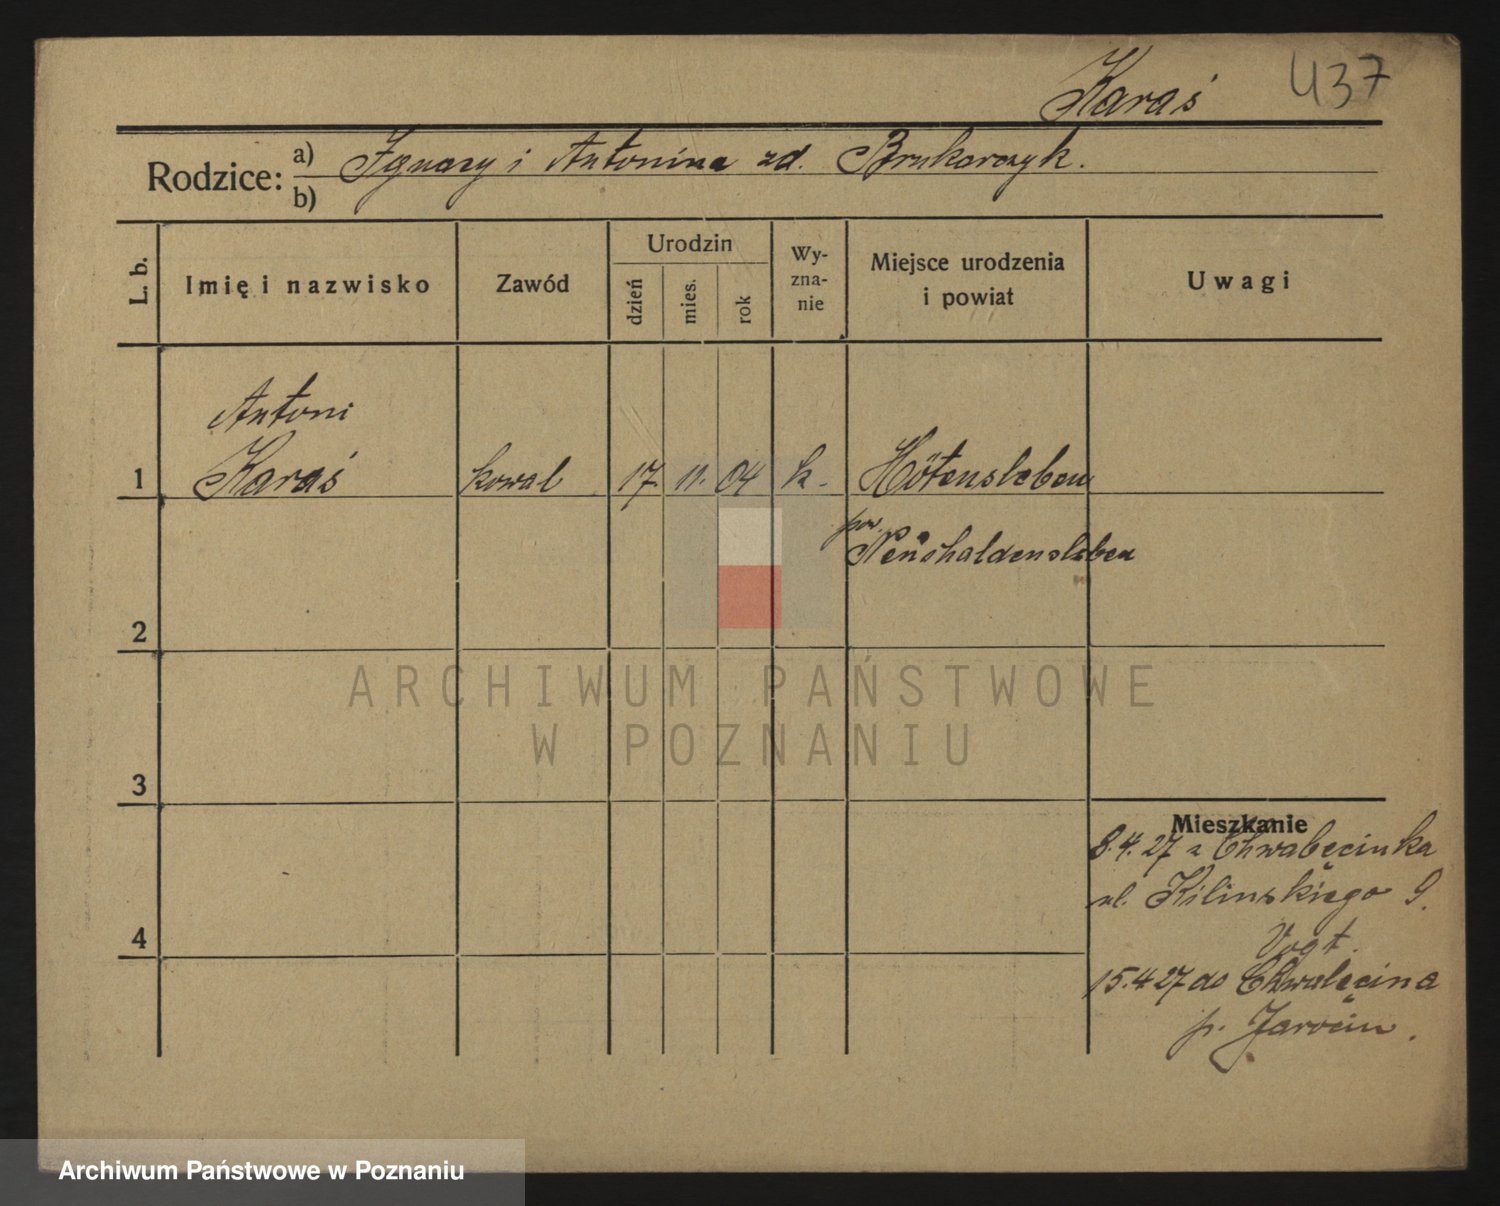 Karaś 437
Rodzice: a) Ignacy i Antonina zd. Brukarczyk.
b)
L. b. Imię i nazwisko Zawód Urodzin dzień mies. rok Wy-zna-nie Miejsce urodzenia i powiat Uwagi
Antoni
1 Karaś kowal 17. 11. 04 k. Hötensleben
pow. Neuhaldensleben
2
3
Mieszkanie
8.4.27 z Chwalęcinka
ul. Kilinskiego 9.
4
Vogt.
15.4.27 do Chwalęcina
p. Jarocin.
ARCHIWUM PAŃSTWOWE
W POZNANIU
Archiwum Państwowe w Poznaniu